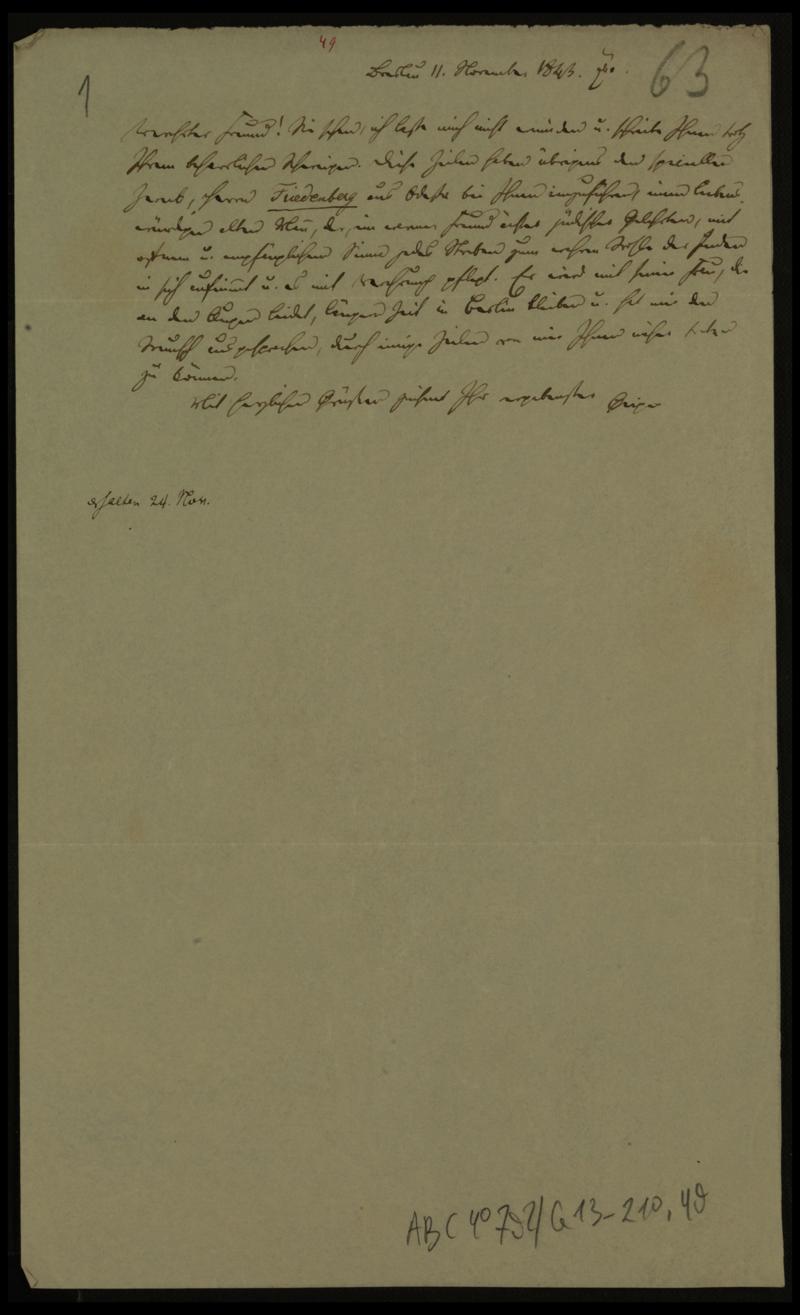 49
Breslau 11. November 1843.
63
1
Verehrter Freund! Sie sehen, ich lasse mich nicht ermüden u. schreibe Ihnen trotz
Ihrem beharrlichen Schweigen. Diese Zeilen haben übrigens den speciellen
Zweck, Herrn Friedenberg aus Odessa bei Ihnen einzuführen, einen liebens-
würdigen alten Mann, der, ein warmer Freund ächter jüdischer Gelehrten, mit
offenem u. empfänglichem Sinne jedes Streben zum wahren Wohle der Juden
in sich aufnimmt u. es mit pflegt. Er wird mit seiner Frau, die
an den Augen leidet, längere Zeit in Berlin bleiben u. hat mir den
Wunsch ausgesprochen, durch einige Zeilen von mir Ihnen näher treten
zu können.
Mit herzlichen Grüßen zeichnet Ihr ergebenster Geiger
erhalten 24. Nov.
ABC 4° 792/G 13-210, 49